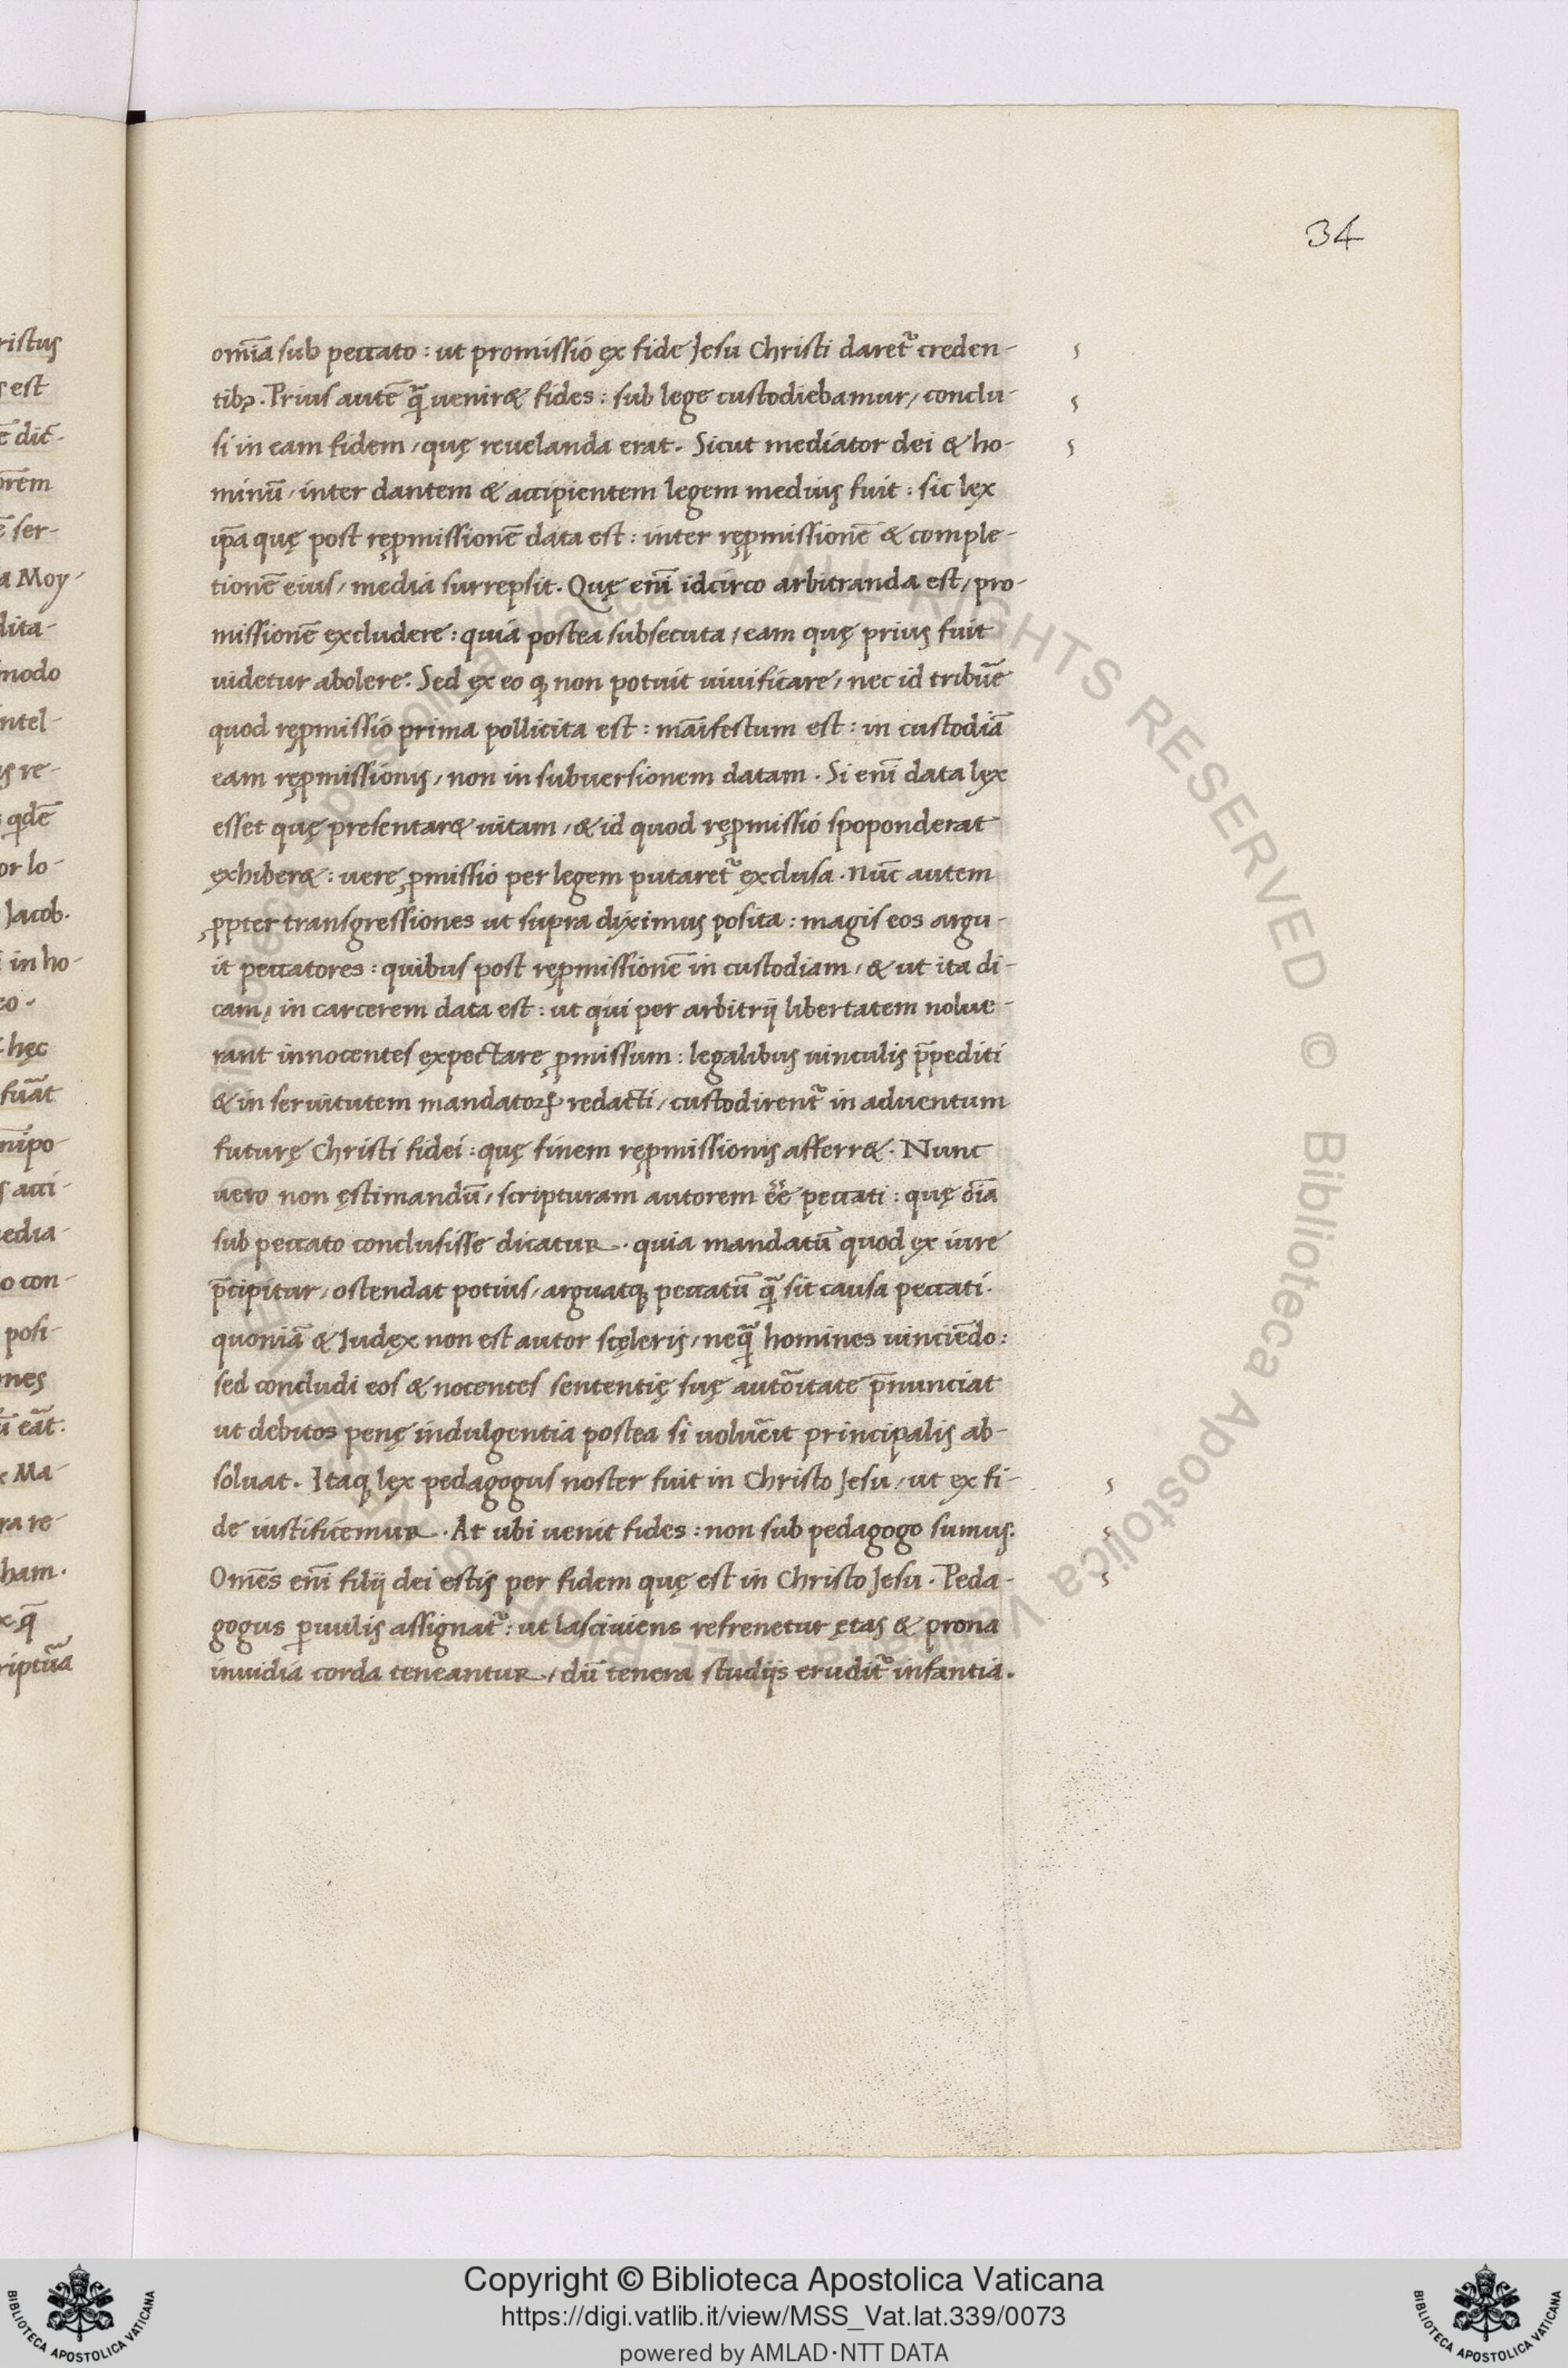 34
ristus
s est
ē dic̄-
orem
ē ser-
a Moy-
dita-
modo
intel-
is re-
qdē
or lo-
Jacob.
in ho-
co-
hęc
fuāt
nīpo-
s acci-
edia-
o con-
posi-
nes
ū eāt.
Ma-
ra re-
ham.
x q̄
riptūa
om̄ia sub peccato : ut promissio ex fide Jesu Christi daretᷣ creden-
tibꝫ. Prius autē q̄ȝ uenir& fides : sub lege custodiebamur / conclu-
si in eam fidem / quę reuelanda erat. Sicut mediator dei & ho-
minū / inter dantem & accipientem legem medius fuit : sic lex
ip̄a quę post reꝓmissionē data est : inter reꝓmissionē & comple-
tionē eius / media surrepsit. Quę eni̅ idcirco arbitranda est / pro-
missionē excludere : quia postea subsecuta / eam quę prius fuit
uidetur abolere. Sed ex eo ꝙ non potuit uiuificare / nec id tribūe
quod reꝓmissio prima pollicita est : māifestum est : in custodiā
eam reꝓmissionis / non in subuersionem datam. Si eni̅ data lex
esset quę presentar& uitam / & id quod reꝓmissio spoponderat
exhiber& : uere ꝓmissio per legem putaretᷣ exclusa. Nūc autem
ꝓpter transgressiones ut supra diximus posita : magis eos argu-
it peccatores : quibus post reꝓmissionē in custodiam / & ut ita di-
cam / in carcerem data est : ut qui per arbitrij libertatem nolue-
rant innocentes expectare ꝓmissum : legalibus uinculis p̄pediti
& in seruitutem mandatoꝝ redacti / custodirentᷣ in aduentum
futurę Christi fidei : quę finem reꝓmissionis afferr&. Nunc
uero non ęstimandū / scripturam autorem ēē peccati : quę oi̅a
sub peccato conclusisse dicatur. quia mandatū quod ex iure
p̄cipitur / ostendat potius / arguatqꝫ peccatū q̄ȝ sit causa peccati.
quoniā & Judex non est autor scęleris / neq̄ȝ homines uinciēdo :
sed concludi eos & nocentes sententię suę autōitate p̄nunciat
ut debitos penę indulgentia postea si uoluēit principalis ab-
soluat. Itaqꝫ lex pedagogus noster fuit in Christo Jesu / ut ex fi-
de iustificemur. At ubi uenit fides : non sub pedagogo sumus.
Omēs eni̅ filij dei estis per fidem quę est in Christo Jesu. Peda-
gogus ꝑuulis assignatᷣ : ut lasciuiens refrenetur ętas & prona
inuidia corda teneantur / dū tenera studijs eruditᷣ infantia.
© Biblioteca Apostolica Vaticana ALL RIGHTS RESERVED © Biblioteca Apostolica Vaticana ALL RIGHTS RESERVED
Copyright © Biblioteca Apostolica Vaticana
https://digi.vatlib.it/view/MSS_Vat.lat.339/0073
powered by AMLAD·NTT DATA
BIBLIOTECA APOSTOLICA VATICANA
BIBLIOTECA APOSTOLICA VATICANA